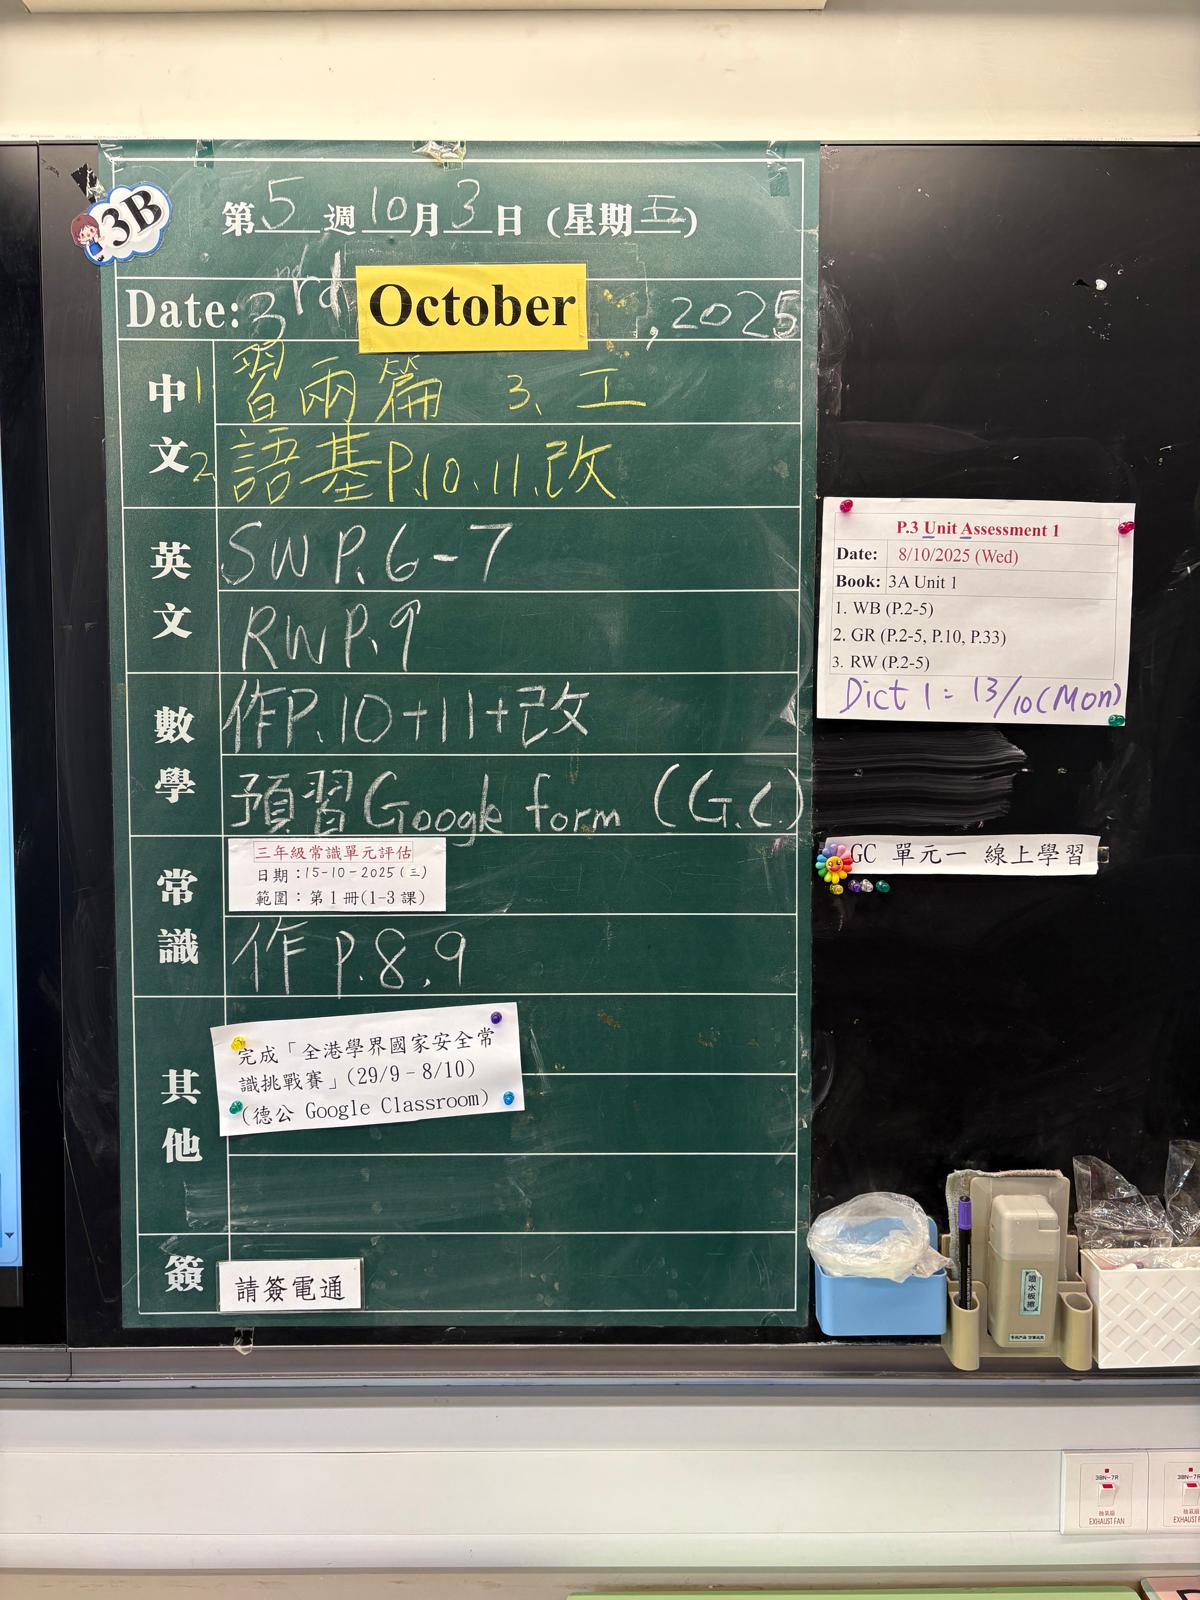 3B
第 5 週 10 月 3 日 (星期五)
Date: 3rd October , 2025
中文
1 習兩篇 3、工
2 語基P.10、11、改
英文
SW P.6-7
RW P.9
數學
作P.10+11+改
預習Google form (G.C.)
常識
三年級常識單元評估
日期：15-10-2025 (三)
範圍：第1冊(1-3課)
作 P.8、9
其他
完成「全港學界國家安全常
識挑戰賽」(29/9-8/10)
(德公 Google Classroom)
簽
請簽電通
P.3 Unit Assessment 1
Date: 8/10/2025 (Wed)
Book: 3A Unit 1
1. WB (P.2-5)
2. GR (P.2-5, P.10, P.33)
3. RW (P.2-5)
Dict 1 = 13/10 (Mon)
GC 單元一 線上學習
噴水板擦
3BN-7R
抽氣扇
EXHAUST FAN
3BN-7R
抽氣扇